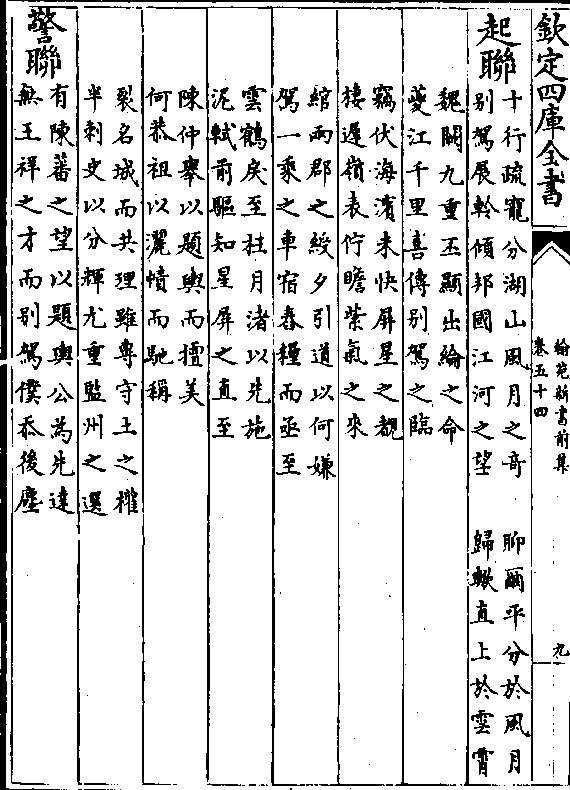 欽定四庫全書
翰苑新書前集
卷五十四
九
起聯
十行疏寵分湖山風月之奇
別駕展軨傾邦國江河之望
聊爾平分於風月
歸㰸直上於雲霄
魏闕九重丕顯出綸之命
夔江千里喜傳別駕之臨
竊伏海濱未快屏星之覩
棲遲嶺表佇瞻紫氣之來
綰兩郡之綬夕引道以何嫌
駕一乘之車宿舂糧而亟至
雲鶴戾至桂月渚以先施
泥軾前驅知星屏之直至
陳仲舉以題輿而擅美
何恭祖以灑幘而馳稱
裂名城而共理雖專守土之權
半刺史以分輝尤重監州之選
警聯
有陳蕃之望以題輿公為先達
無王祥之才而別駕僕忝後塵